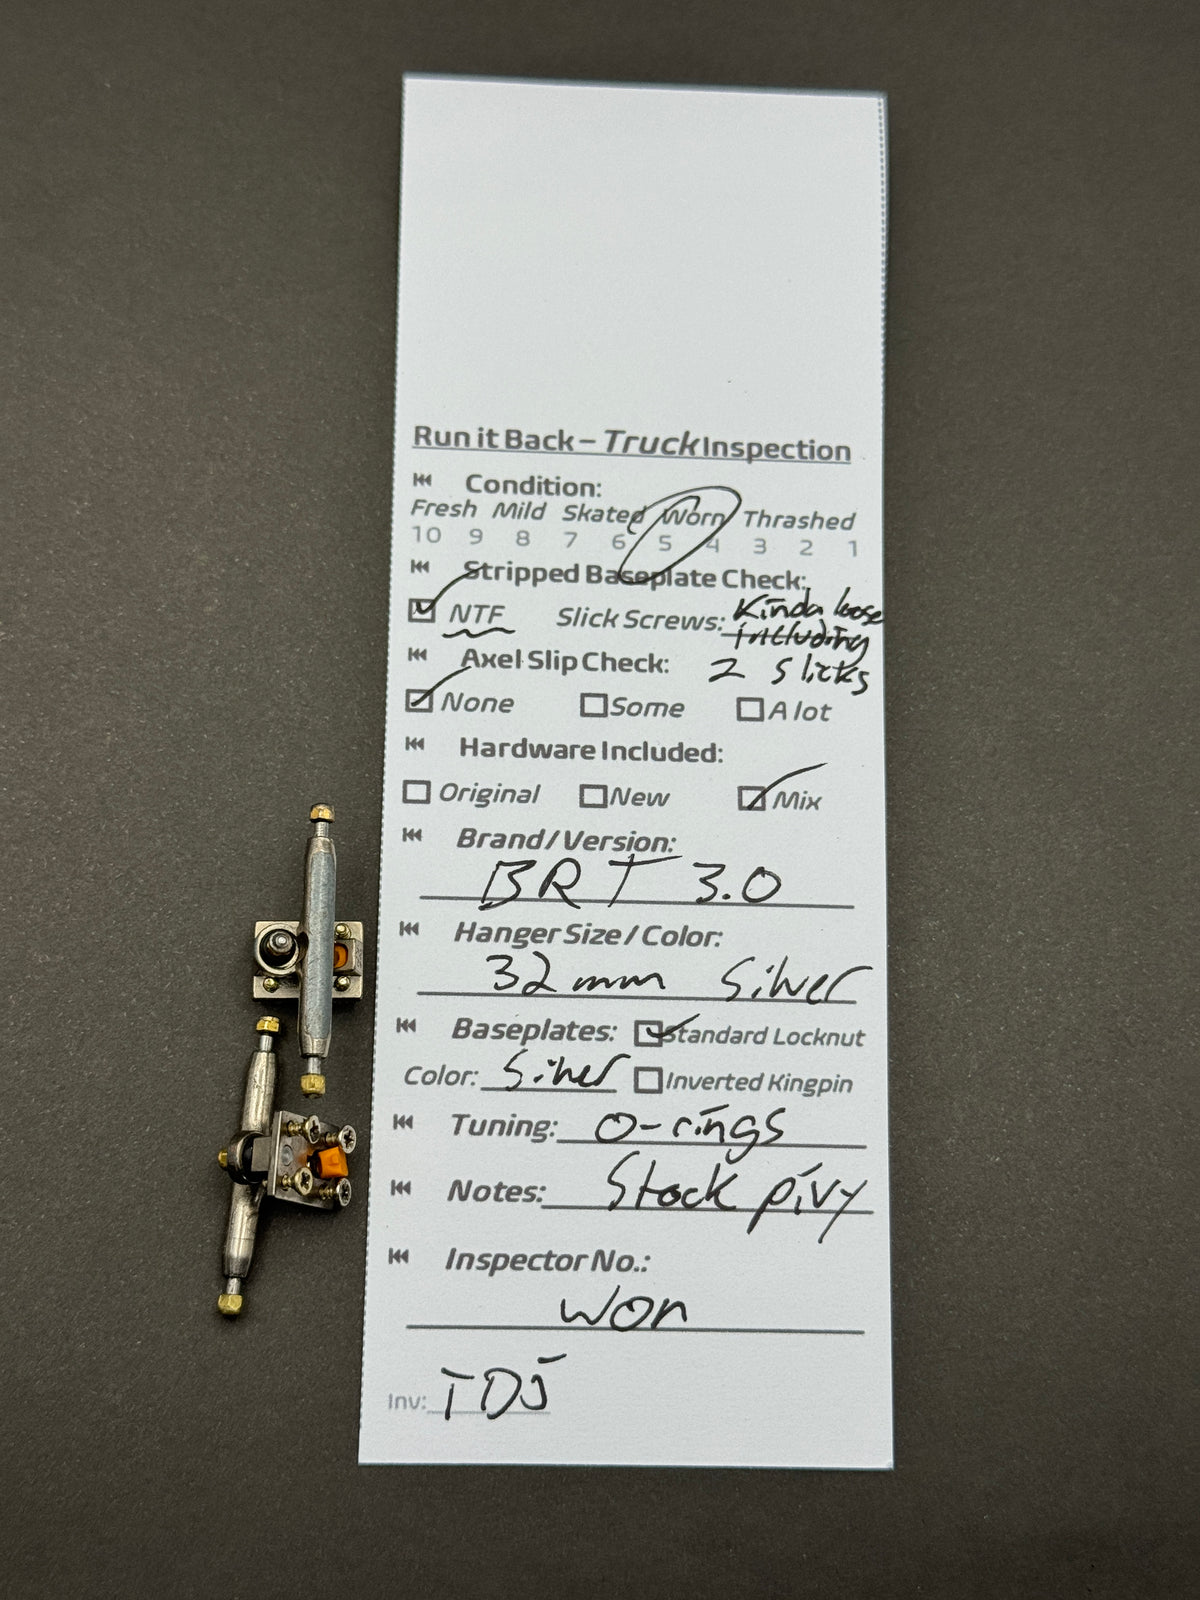 Run it Back – Truck Inspection
Condition:
Fresh Mild Skated Worn Thrashed
10 9 8 7 6 5 4 3 2 1
Stripped Baseplate Check:
NTF Slick Screws: Kinda loose
including
2 slicks
Axel Slip Check:
None Some A lot
Hardware Included:
Original New Mix
Brand/Version:
BRT 3.0
Hanger Size/Color:
32mm Silver
Baseplates: Standard Locknut
Color: Silver Inverted Kingpin
Tuning: O-rings
Notes: Stock pivy
Inspector No.:
won
Inv: TDJ